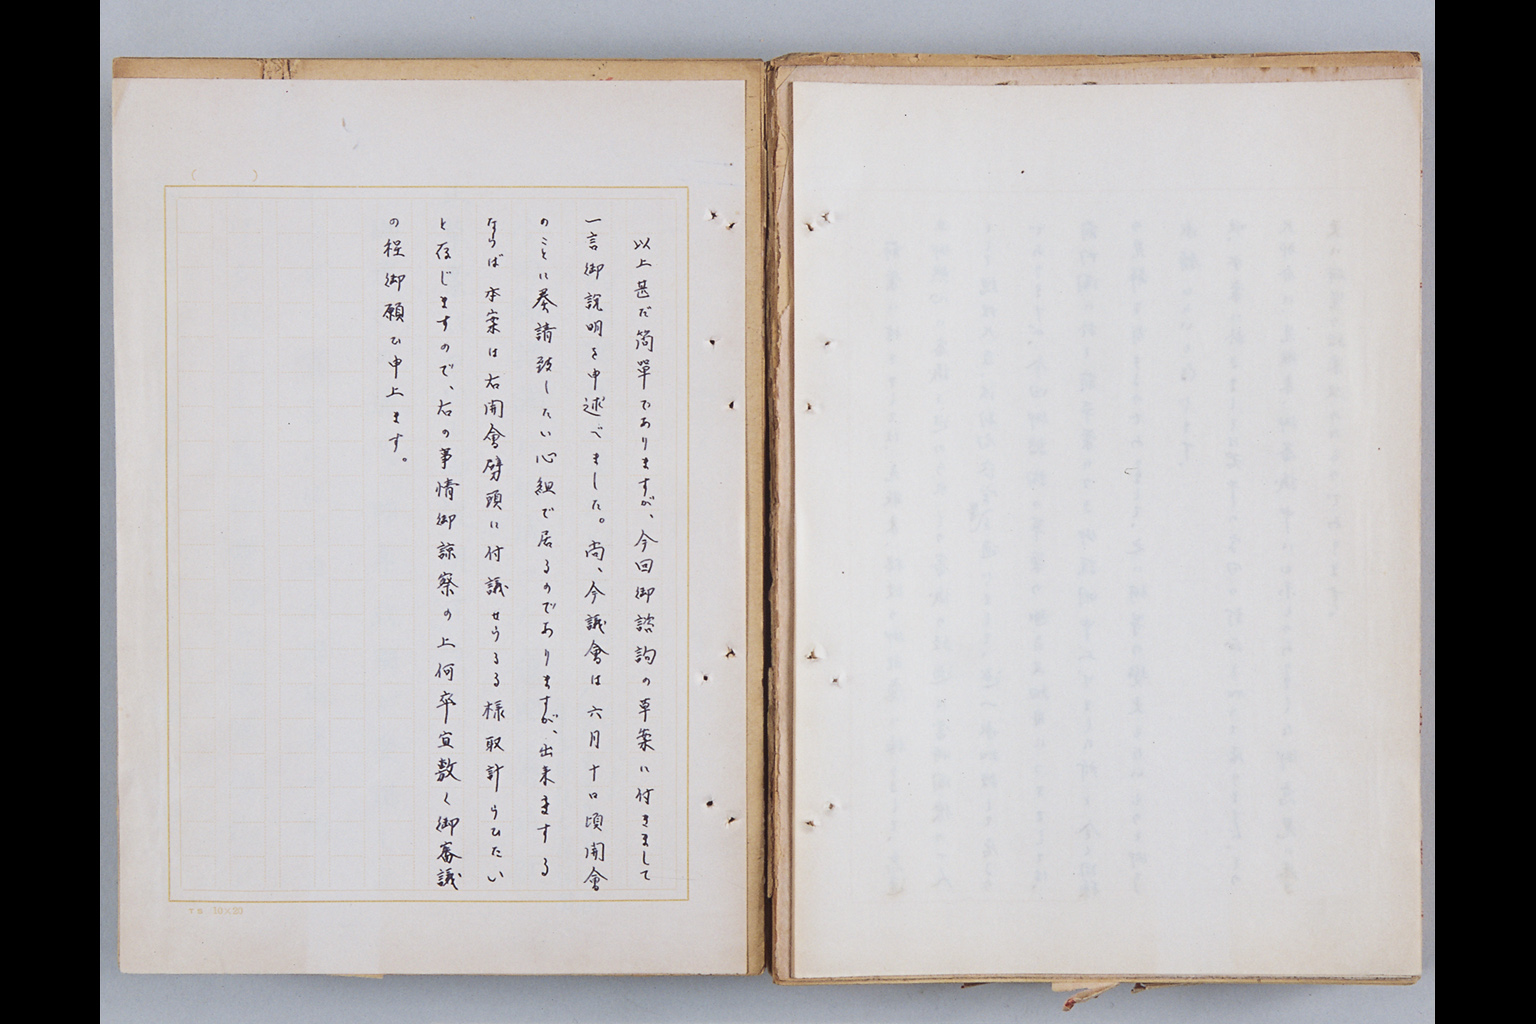 以上甚だ簡單でありますが、今回御諮詢の草案に付きまして
一言御説明を申述べました。尚、今議會は六月十日頃開會
のことに奏請致したい心組で居るのでありますが、出来まする
ならば本案は右開會劈頭に付議せらるる様取計らひたい
と存じますので、右の事情御諒察の上何卒宜敷く御審議
の程御願ひ申上ます。
10×20